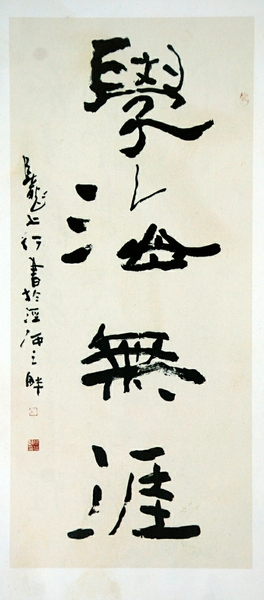 學海無涯
書於涇河之畔